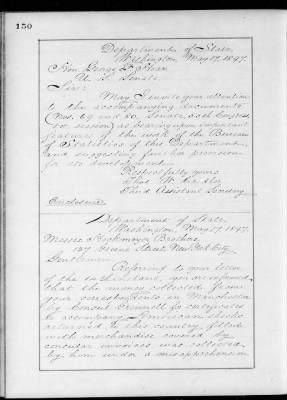 150
Department of State,
Washington, May 17, 1897.
Hon. George
U. S. Senate.
Sir:
May I invite your attention
to the accompanying documents
(Nos. 69 and 80, Senate, 55th Congress,
1st session) as bearing upon important
features of the work of the Bureau
of Statistics of this Department,
and suggesting further provision
for its development.
Respectfully yours
Thos. W. Cridler
Third Assistant Secretary.
Enclosure.
Department of State.
Washington, May 17, 1897.
Messrs Brothers,
Greene Street, New York City.
Gentlemen:
Referring to your letter
of the instant, you are informed
that the money collected from
your correspondents in Manchester
by Consul Grinnell for certificates
to accompany American
returned to this country filled
with merchandise covered by
consular invoices was collected
by him under a misapprehension